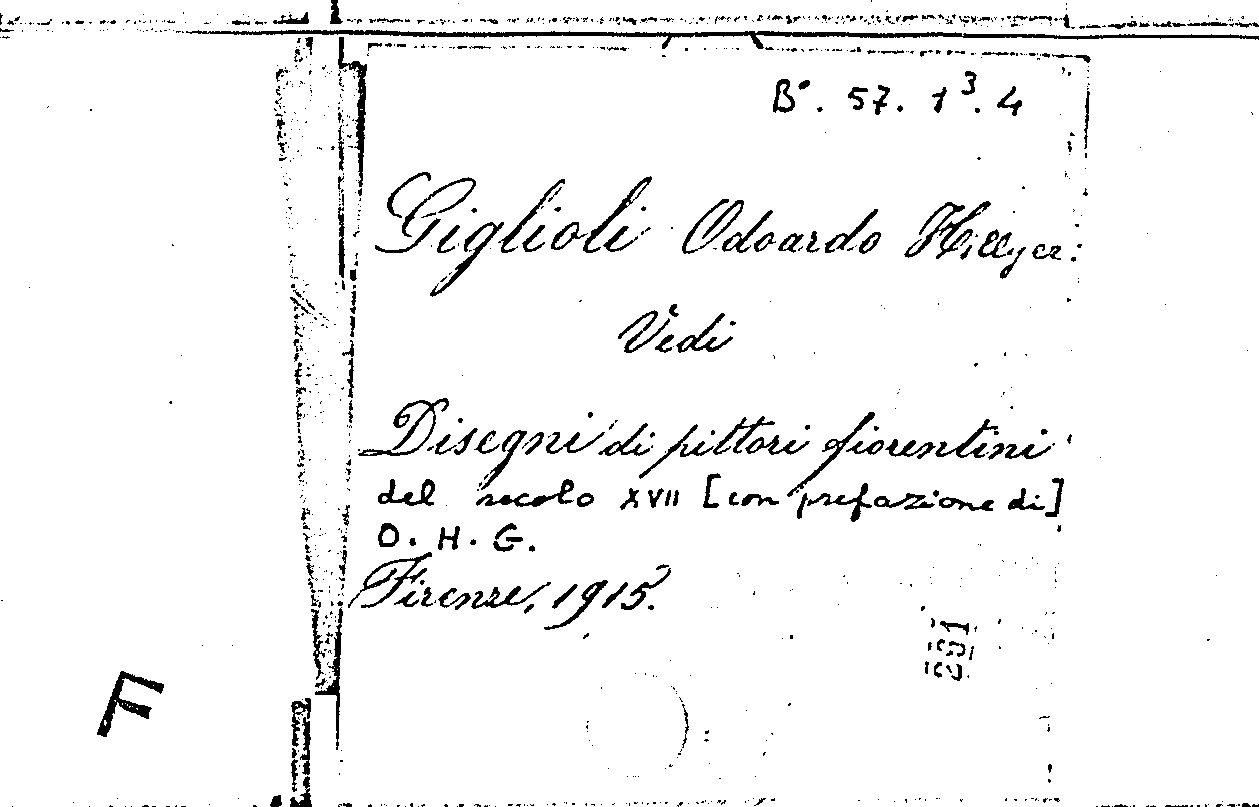 B°. 57. 1³. 4
Giglioli Odoardo Hillyer:
Vedi
Disegni di pittori fiorentini
del secolo XVII [con prefazione di]
O. H. G.
Firenze, 1915.
F